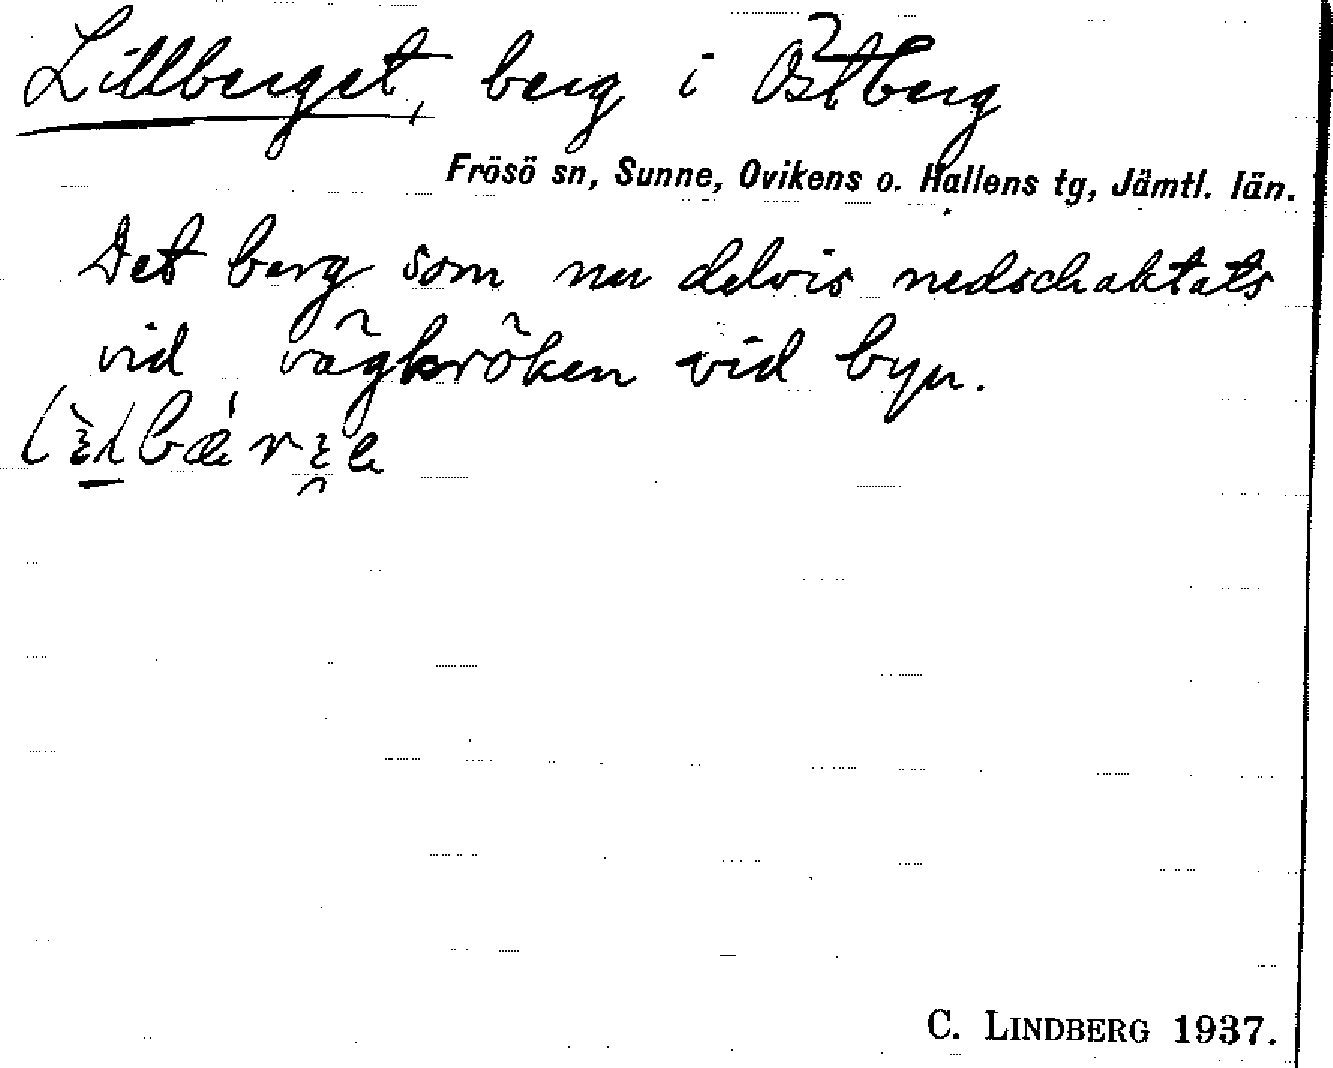 Lillberget, berg i Östberg
Frösö sn, Sunne, Ovikens o. Hallens tg, Jämtl. län.
Det berg som nu delvis nedschaktats
vid vägkröken vid byn.
C. LINDBERG 1937.